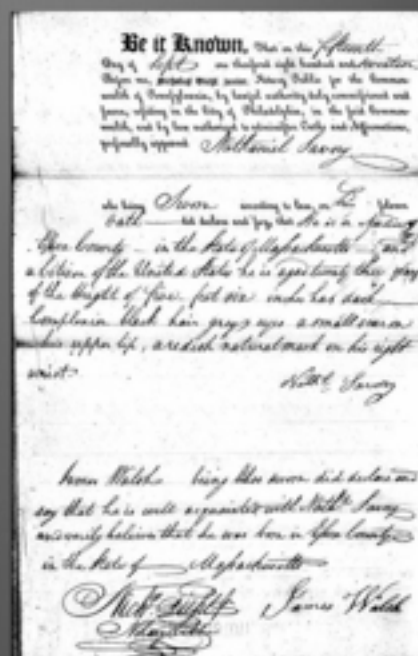 Be it Known, That on this fifteenth
Day of Sept one thousand eight hundred and
Before me, Notary Public for the Common-
wealth of Pennsylvania, by lawful authority duly commissioned and
sworn, residing in the City of Philadelphia, in the said Common-
wealth, and by law authorized to administer Oaths and Affirmations,
personally appeared Nathaniel Savory
who being Sworn according to law, on his solemn
oath did declare and say, that He is a native of
Essex County in the State of Massachusetts and
a Citizen of the United States he is aged twenty three years
of the height of five feet six inches has dark
Complexion black hair grey eyes a small scar on
his upper lip, a redish natural mark on his right
wrist.
Nathl Savory
James Walsh being likewise sworn did declare and
say that he is well acquainted with Nathl Savory
and verily believes that he was born in Essex County
in the State of Massachusetts
James Walsh